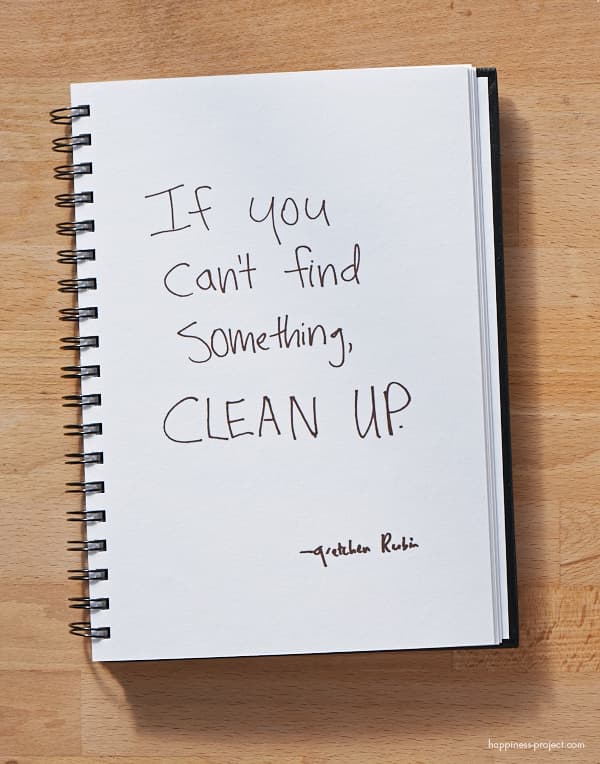 If you
can't find
something,
CLEAN UP.
-Gretchen Rubin
happiness-project.com